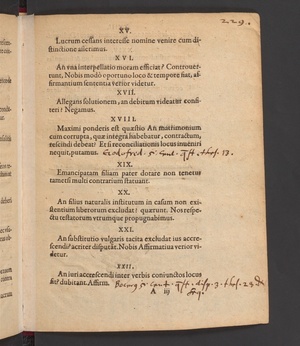 229.
XV.
Lucrum cessans interesse nomine venire cum di-
stinctione asserimus.
XVI.
An vna interpellatio moram efficiat? Controuer-
tunt, Nobis modò oportuno loco & tempore fiat, af-
firmantium sententia verior videtur.
XVII.
Allegans solutionem, an debitum videatur confi-
teri? Negamus.
XVIII.
Maximi ponderis est quæstio An matrimonium
cum corrupta, quæ integra habebatur, contractum,
rescindi debeat? Et si reconciliationis locus inueniri
nequit, putamus.
XIX.
Emancipatam filiam pater dotare non tenetur
tametsi multi contrarium statuant.
XX.
An filius naturalis institutum in casum non exi-
stentium liberorum excludat? quærunt. Nos respe-
ctu testatorum vtrumque propugnabimus.
XXI.
An substitutio vulgaris tacita excludat ius accre-
scendi? acriter disputat. Nobis Affirmatiua verior vi-
detur.
XXII.
An iuri accrescendi inter verbis coniunctos locus
sit? dubitant. Affirm.
A iij